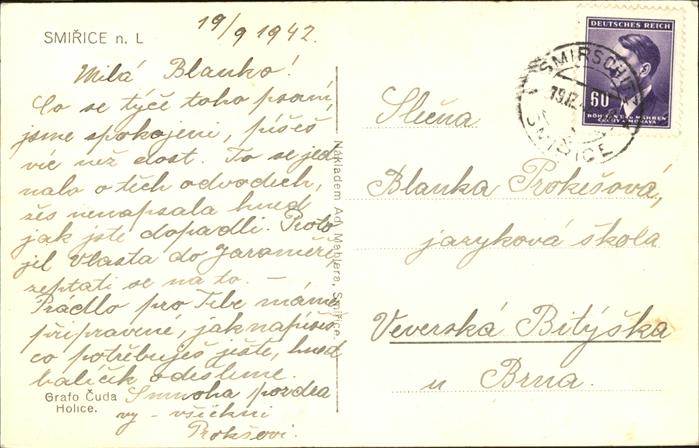 SMIŘICE n. L
19/9 1942.
Milá Blanko!
Co se týče toho psaní,
jsme spokojeni, píšeš
víc než dost. To se jed-
nalo o těch odvodech,
žes nenapsala hned
jak jste dopadli. Proto
jel Vlasta do Jaroměře
zeptati se na to. —
Prádlo pro Tebe máme
připravené, jak napíšeš
co potřebuješ ještě, hned
balíček odešleme.
S mnoha pozdra
vy - všichni
Prokšovi.
Grafo Čuda
Holice.
Nákladem Ad. Mahlera, Smiřice.
DEUTSCHES REICH
60
BÖHMEN u. MÄHREN
ČECHY a MORAVA
SMIRSCHITZ
SMIŘICE
Slečna
Blanka Prokešová,
jazyková škola
Veverská Bitýška
u Brna.